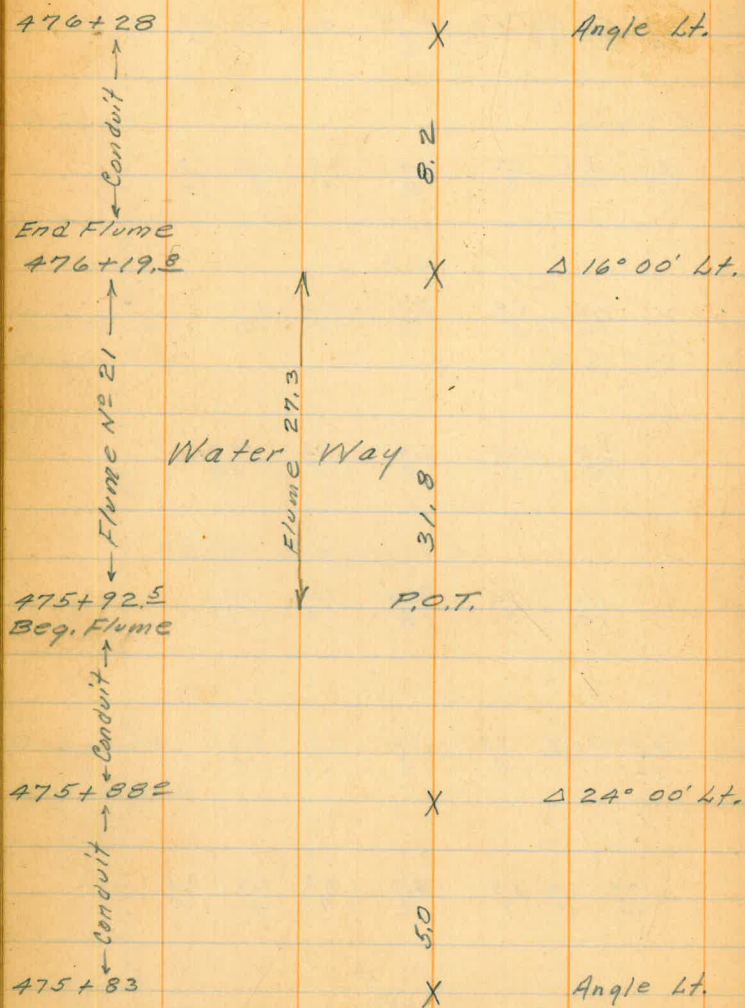 476+28 X Angle Lt.
← Conduit →
8.2
End Flume
476+19.8 X Δ 16° 00' Lt.
← Flume Nº 21 →
Flume 27.3
Water Way
31.8
475+92.5 P.O.T.
Beg. Flume
← Conduit →
475+88º X Δ 24° 00' Lt.
← Conduit →
5.0
475+83 X Angle Lt.